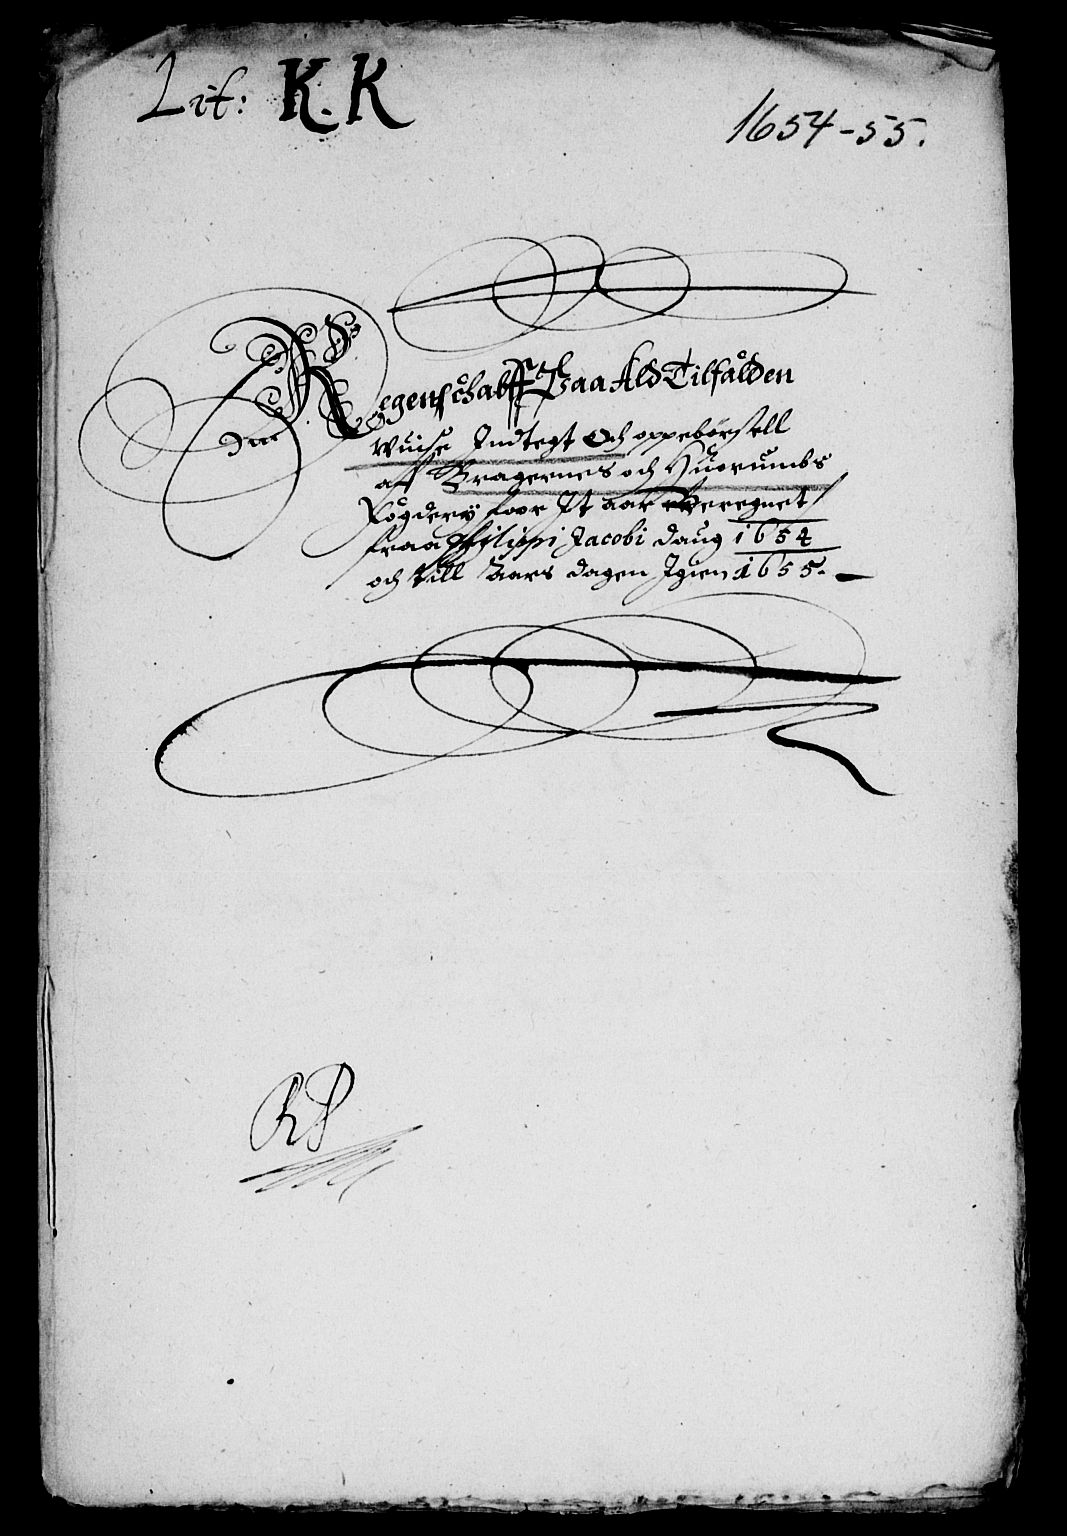 Lit: K. K
1654-55.
Regenschabff Paa Ald Tilfalden
Wuise Indtegt Och oppebørsell
aff Bragernes och Huorumbs
Fógderÿ foor It aar Bereegnet
fraa Philippi Jacobi daug 1654
och till Aars dagen Igien 1655.